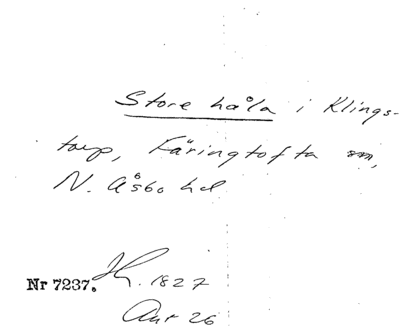 Store håla i Klings-
torp, Färingtofta sn,
N. Åsbo hd
Nr 7237. 1827
26